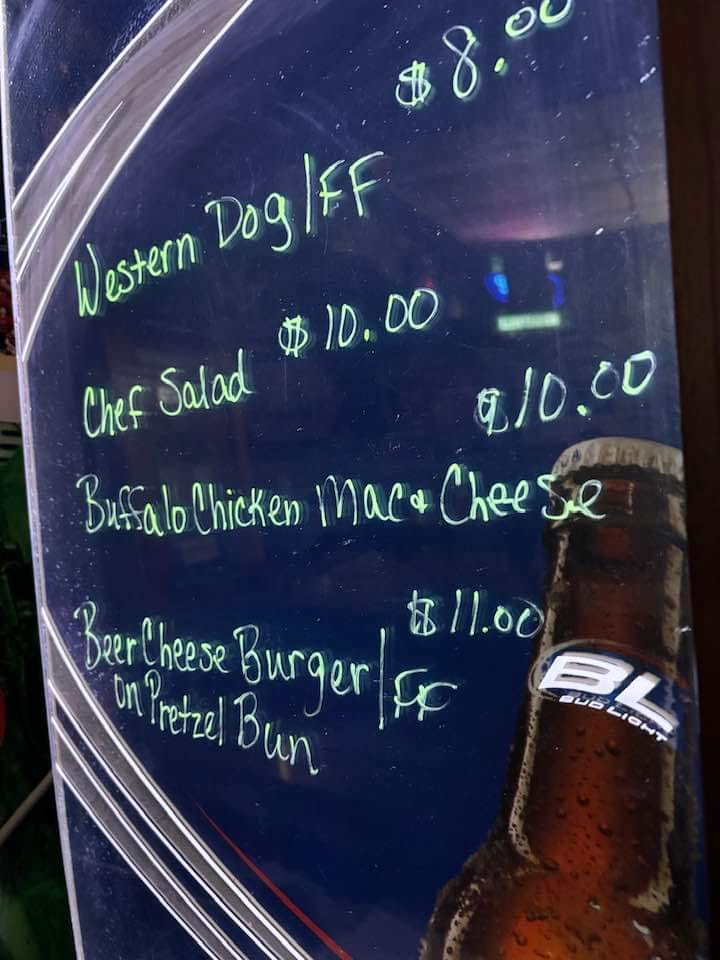 $8.00
Western Dog/FF
$10.00
Chef Salad
$10.00
Buffalo Chicken Mac & Cheese
$11.00
Beer Cheese Burger/FF
on Pretzel Bun
BL
BUD LIGHT